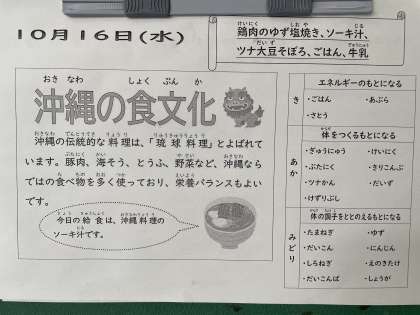 10月16日(水)
鶏肉のゆず塩焼き、ソーキ汁、
ツナ大豆そぼろ、ごはん、牛乳
おきなわ しょくぶんか
沖縄の食文化
沖縄の伝統的な料理は、「琉球料理」とよばれて
います。豚肉、海そう、とうふ、野菜など、沖縄なら
ではの食べ物を多く使っており、栄養バランスもよい
です。
今日の給食は、沖縄料理の
ソーキ汁です。
き
エネルギーのもとになる
・ごはん ・あぶら
・さとう
あか
体をつくるもとになる
・ぎゅうにゅう ・けいにく
・ぶたにく ・きりこんぶ
・ツナかん ・だいず
・けずりぶし
みどり
体の調子をととのえるもとになる
・たまねぎ ・ゆず
・だいこん ・にんじん
・しろねぎ ・えのきたけ
・だいこんば ・しょうが